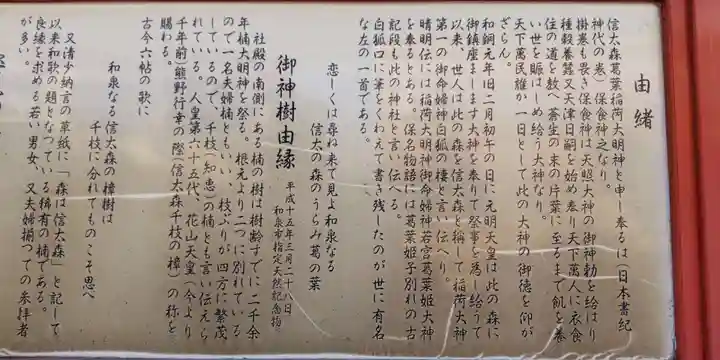 由緒
信太森葛葉稲荷大明神と申し奉るは(日本書紀
神代の巻)保食神之なり。
掛巻も畏き保食神は天照大神の御神勅を給はり
種穀養蚕又天津日嗣を始め奉り天下萬人に衣食
住の道を教へ蒼生の末の片葉に至るまで飢を養
い世を賑はしめ給う大神なり。
天下萬民誰か一日として此の大神の御徳を仰が
ざらん。
和銅元年旧二月初午の日に元明天皇は此の森に
御鎮座まします大神を奉りて祭事を為し給うて
以来、世人は此の森を信太森と称して稲荷大神
第一の御命婦神白狐の棲と言い伝へり。
晴明伝には稲荷大明神御命婦神若宮葛葉姫大神
を奉るとある。保名物語には葛葉姫子別れの古
記段も此の神社と言い伝へる。
白狐口に筆をくわえて書き残したのが世に有名
な左の一首である。
恋しくは尋ね来て見よ和泉なる
信太の森のうらみ葛の葉
御神樹由縁
平成十五年三月二十八日
和泉市指定天然記念物
社殿の南側にある楠の樹は樹齢すでに二千余
年楠大明神を祭る。根元より二つに別れている
ので一名夫婦楠ともいい、枝ぶりが四方に繁茂
しているので、千枝(知恵)の楠とも言い伝えら
れている。人皇第六十五代、花山天皇(今より
千年前)熊野行幸の際(信太森千枝の樟)の称を
賜わる。
古今六帖の歌に
和泉なる信太森の樟樹は
千枝に分れてものこそ思へ
又清少納言の草紙に「森は信太森」と記して
以来和歌の題となつている稀有の楠である。
良縁を求める若い男女、又夫婦揃つての参拝者
が多い。